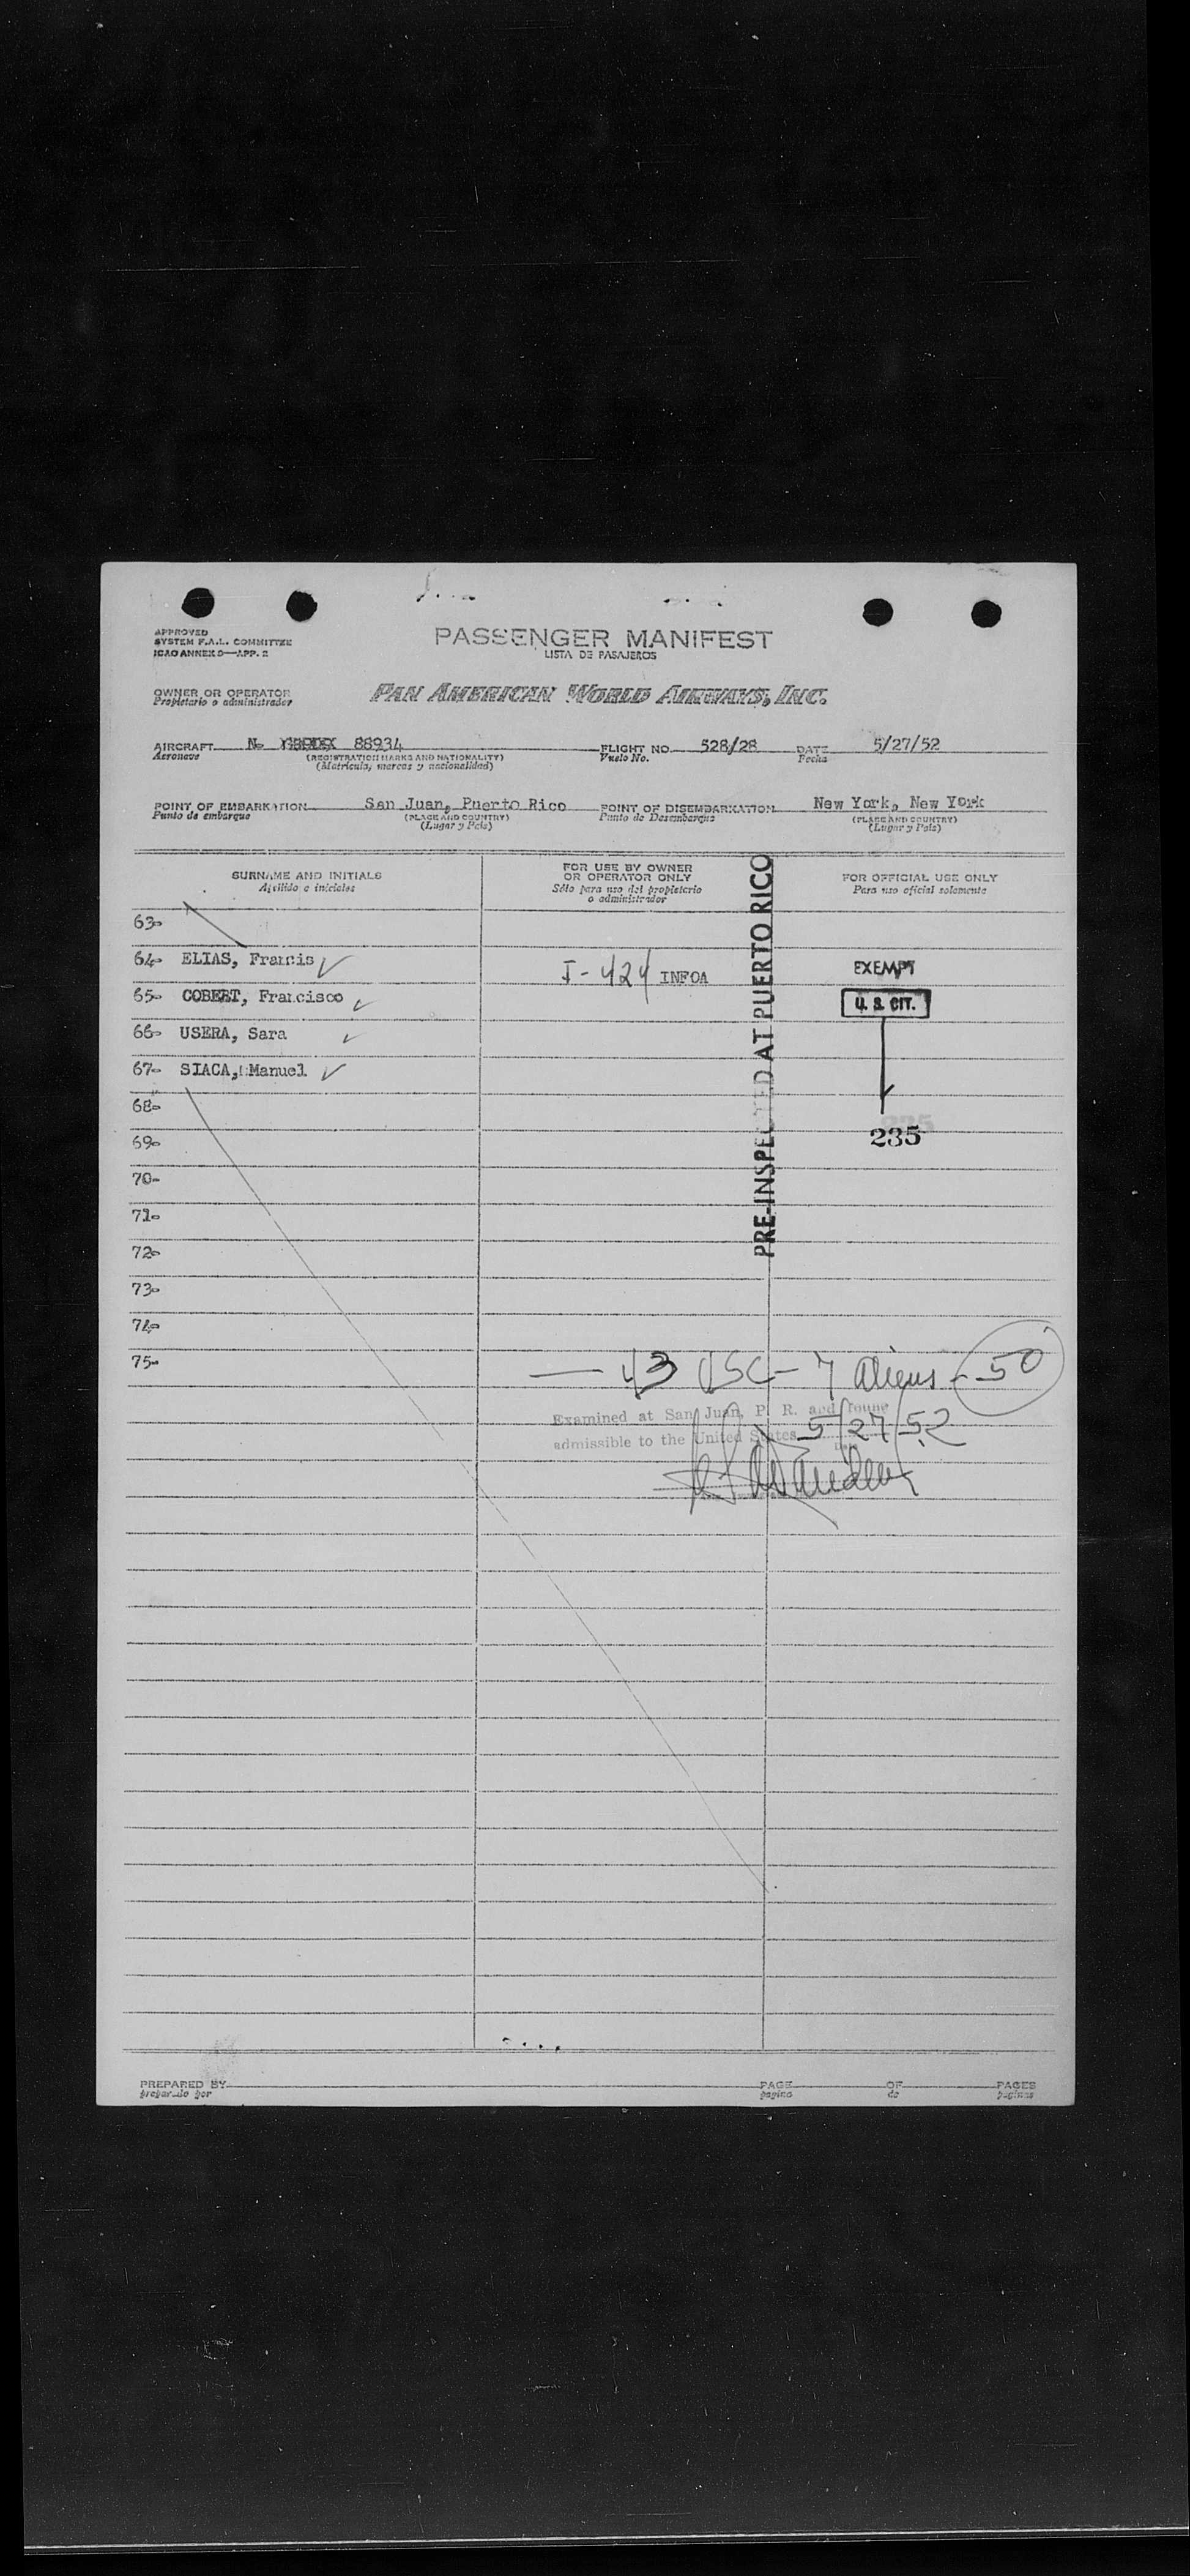 APPROVED
SYSTEM F.A.L. COMMITTEE
ICAO ANNEX 9—APP. 2
PASSENGER MANIFEST
LISTA DE PASAJEROS
OWNER OR OPERATOR
Propietario o administrador
PAN AMERICAN WORLD AIRWAYS, INC.
AIRCRAFT N. 88934 FLIGHT NO. 528/28 DATE 5/27/52
Aeronave (REGISTRATION MARKS AND NATIONALITY) Vuelo No. Fecha
(Matricula, marcas y nacionalidad)
POINT OF EMBARKATION San Juan, Puerto Rico POINT OF DISEMBARKATION New York, New York
Punto de embarque (PLACE AND COUNTRY) Punto de Desembarque (PLACE AND COUNTRY)
(Lugar y País) (Lugar y País)
SURNAME AND INITIALS
Apellido e iniciales
FOR USE BY OWNER
OR OPERATOR ONLY
Sólo para uso del propietario
o administrador
FOR OFFICIAL USE ONLY
Para uso oficial solamente
PRE-INSPECTED AT PUERTO RICO
63-
64- ELIAS, Francis I-424 INFOA EXEMPT
65- COBERT, Francisco U. S. CIT.
66- USERA, Sara
67- SIACA, Manuel
68-
69- 235
70-
71-
72-
73-
74-
75- — 43 USC - 7 aliens - 50
Examined at San Juan, P. R. and found
admissible to the United States 5/27/52
Date
PREPARED BY PAGE OF PAGES
preparado por pagina de paginas